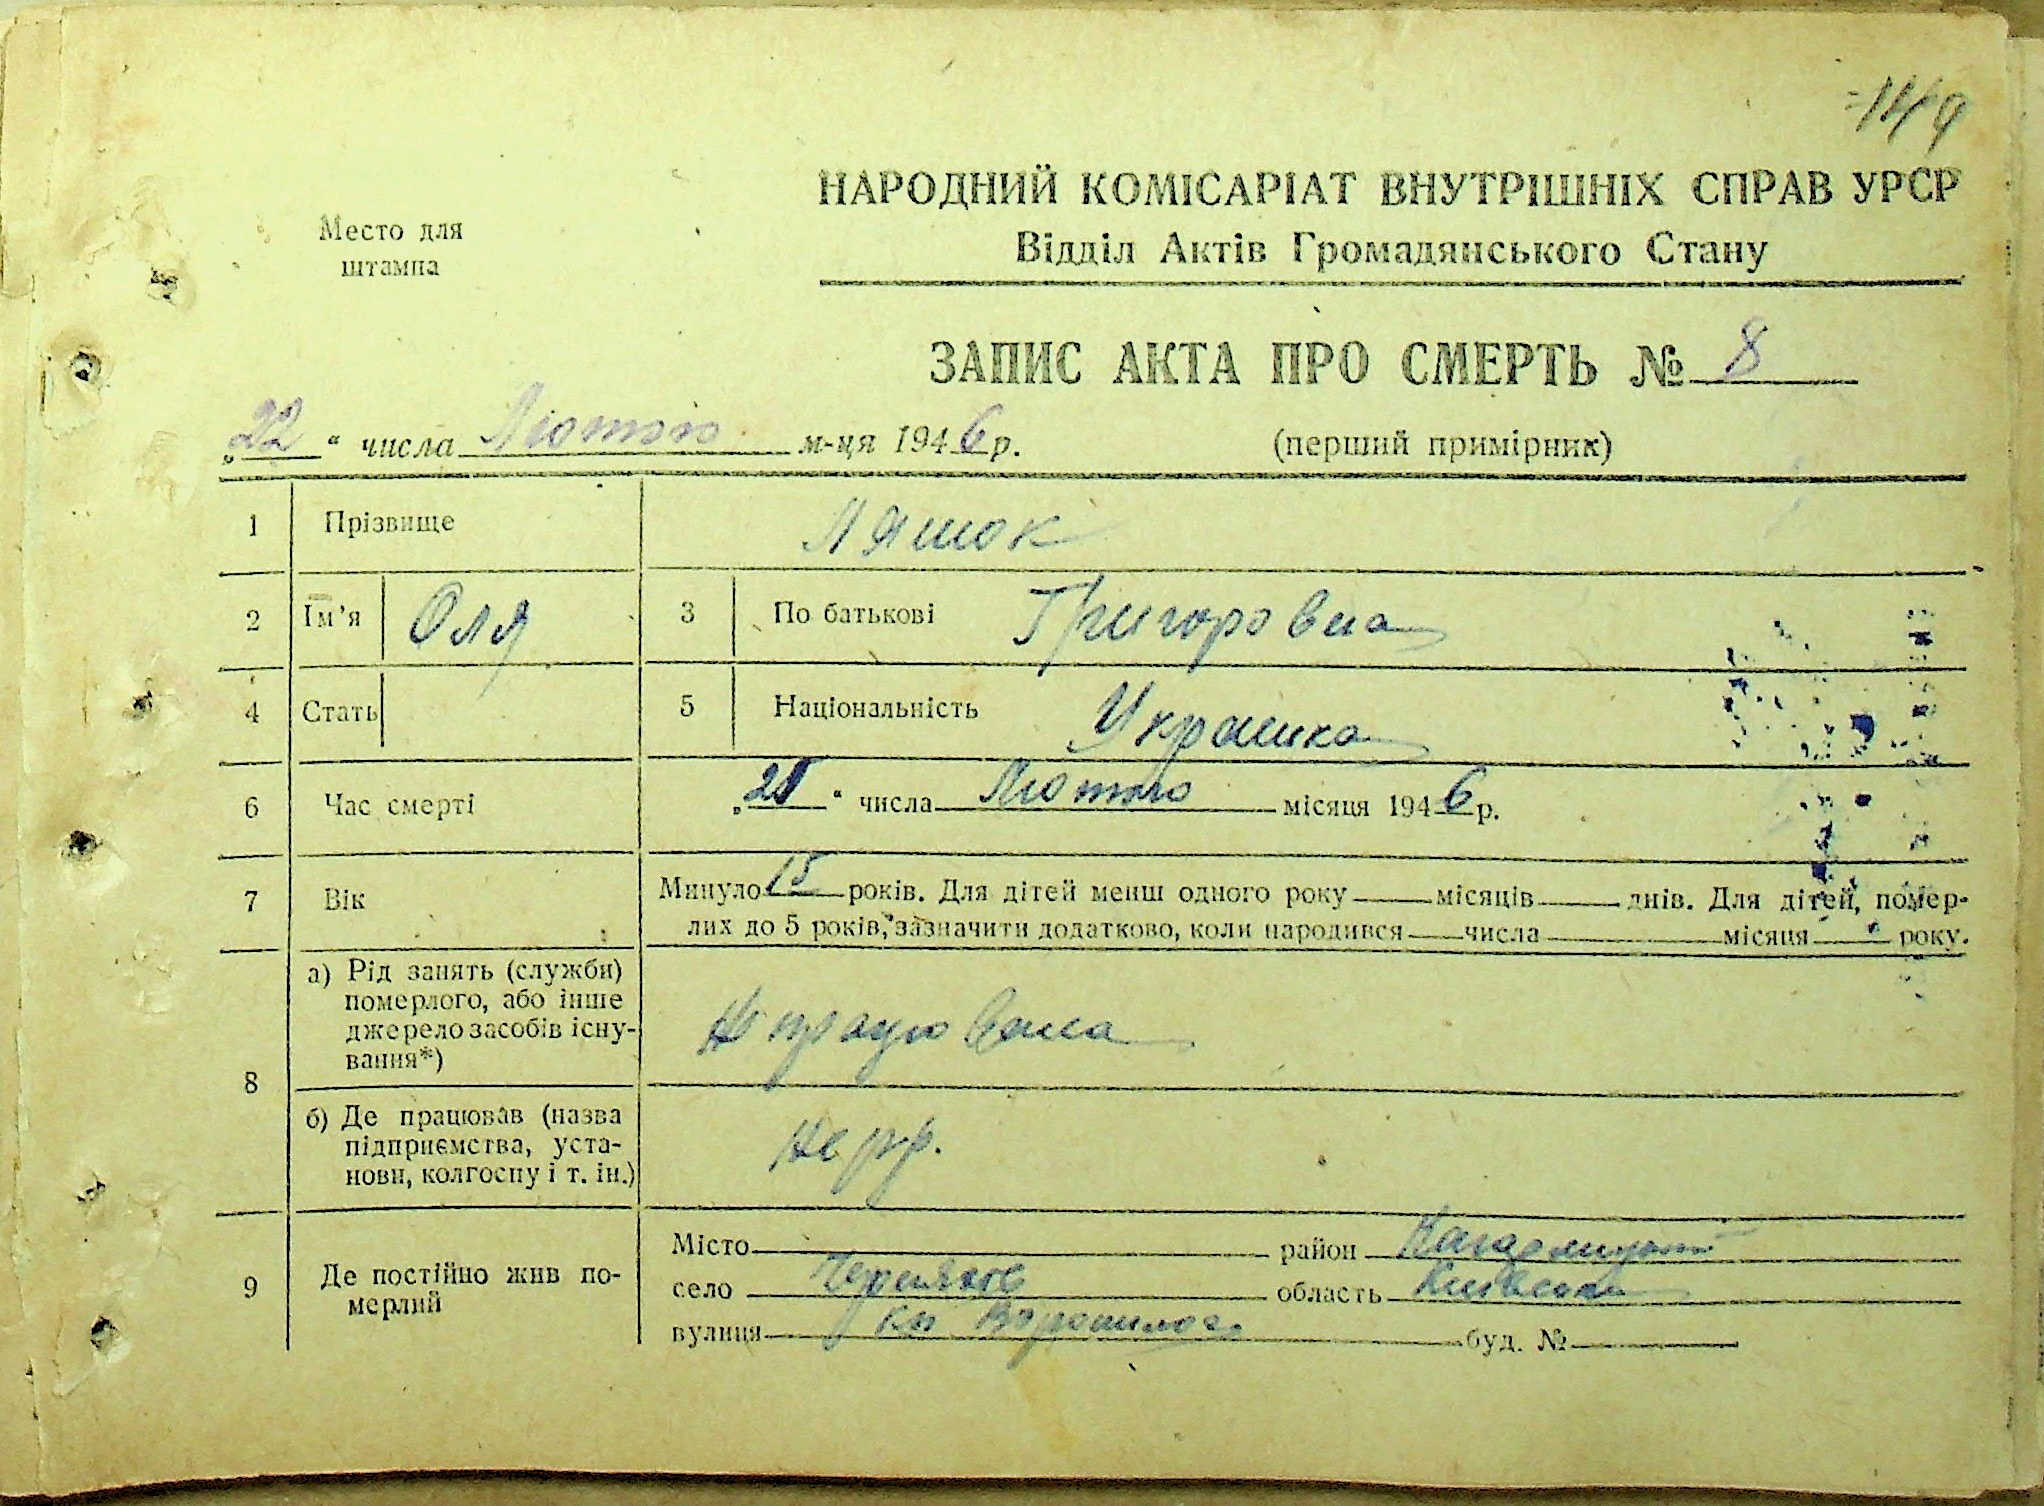 149
НАРОДНИЙ КОМІСАРІАТ ВНУТРІШНІХ СПРАВ УРСР
Место для
штампа
Відділ Актів Громадянського Стану
ЗАПИС АКТА ПРО СМЕРТЬ № 8
„22“ числа Лютого м-ця 1946 р. (перший примірник)
1 Прізвище Ляшок
2 Ім'я Оля 3 По батькові Григоровна
4 Стать 5 Національність Украинка
6 Час смерті „ “ числа Лютого місяця 1946 р.
7 Вік Минуло 15 років. Для дітей менш одного року місяців днів. Для дітей, помер-
лих до 5 років, зазначити додатково, коли народився числа місяця року.
8 а) Рід занять (служби)
померлого, або інше
джерело засобів існу-
вання*)
Не працювала
б) Де працював (назва
підприємства, уста-
нови, колгоспу і т. ін.)
Не
9 Де постійно жив по-
мерлий
Місто район Кагарлицький
село Черняхов область Київська
вулиця Ворошилова буд. №